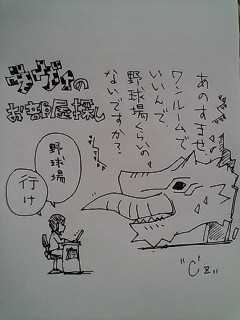 ヴヴィの
お部屋探し
あのすませ、
ワンルームで
いいんで
野球場くらいの、
ないですか?
野球場
行け